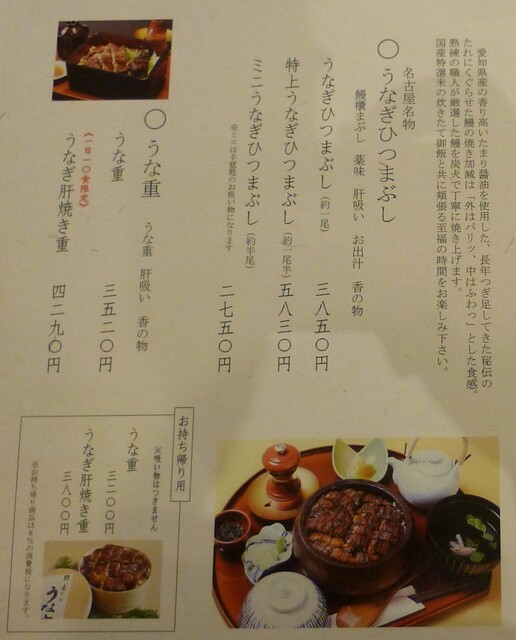 愛知県産の香り高いたまり醤油を使用した、長年つぎ足してきた秘伝の
たれにくぐらせた鰻の焼き加減は「外はパリッ、中はふわっ」とした食感。
熟練の職人が厳選した鰻を炭火で丁寧に焼き上げます。
国産特選米の炊きたて御飯と共に頬張る至福の時間をお楽しみ下さい。
名古屋名物
〇うなぎひつまぶし
鰻櫃まぶし 薬味 肝吸い お出汁 香の物
うなぎひつまぶし(約一尾) 三八五〇円
特上うなぎひつまぶし(約一尾半) 五八三〇円
ミニうなぎひつまぶし(約半尾) 二七五〇円
※ミニは手毬麩のお吸い物になります
〇うな重 うな重 肝吸い 香の物
うな重 三五二〇円
《一日一〇食限定》
うなぎ肝焼き重 四二九〇円
お持ち帰り用
※吸い物はつきません
うな重 三二〇〇円
うなぎ肝焼き重 三八〇〇円
※お持ち帰り商品は8%の消費税になります。